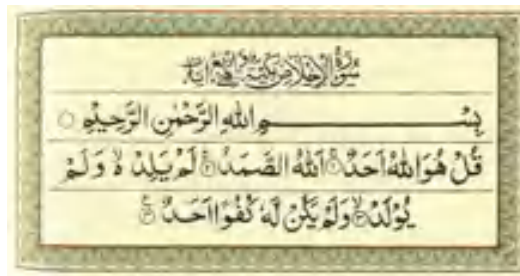 سُورَةُ الْإِخْلَاصِ مَكِّيَّةٌ وَهِيَ أَرْبَعُ آيَاتٍ
بِسْمِ اللهِ الرَّحْمٰنِ الرَّحِيْمِ ○
قُلْ هُوَ اللهُ اَحَدٌ ۚ اَللهُ الصَّمَدُ ۚ لَمْ يَلِدْ ۙ وَلَمْ
يُوْلَدْ ۙ وَلَمْ يَكُنْ لَّهٗ كُفُوًا اَحَدٌ ۧ